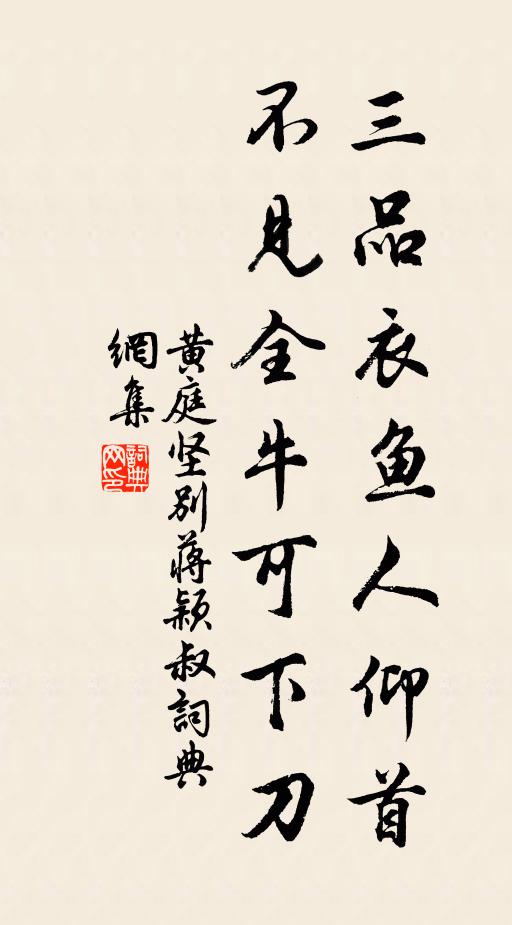 三品衣鱼人仰首
不见全牛可下刀
黄庭坚别蒋颖叔詞典
網集
詞典网印